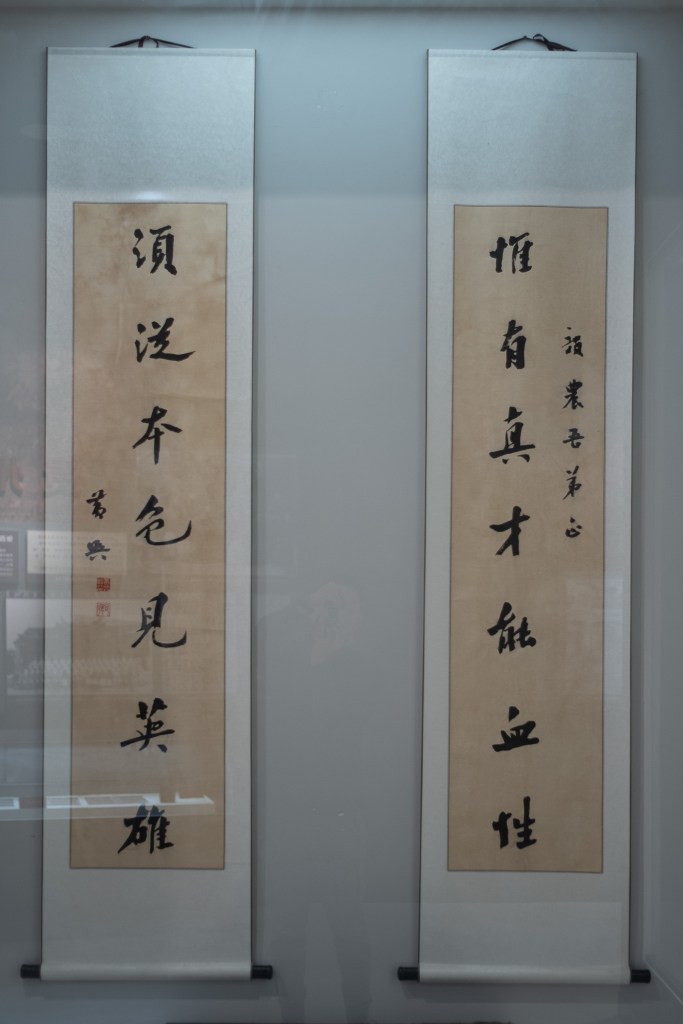 農吾弟正
惟有真才能血性
須從本色見英雄
黃興